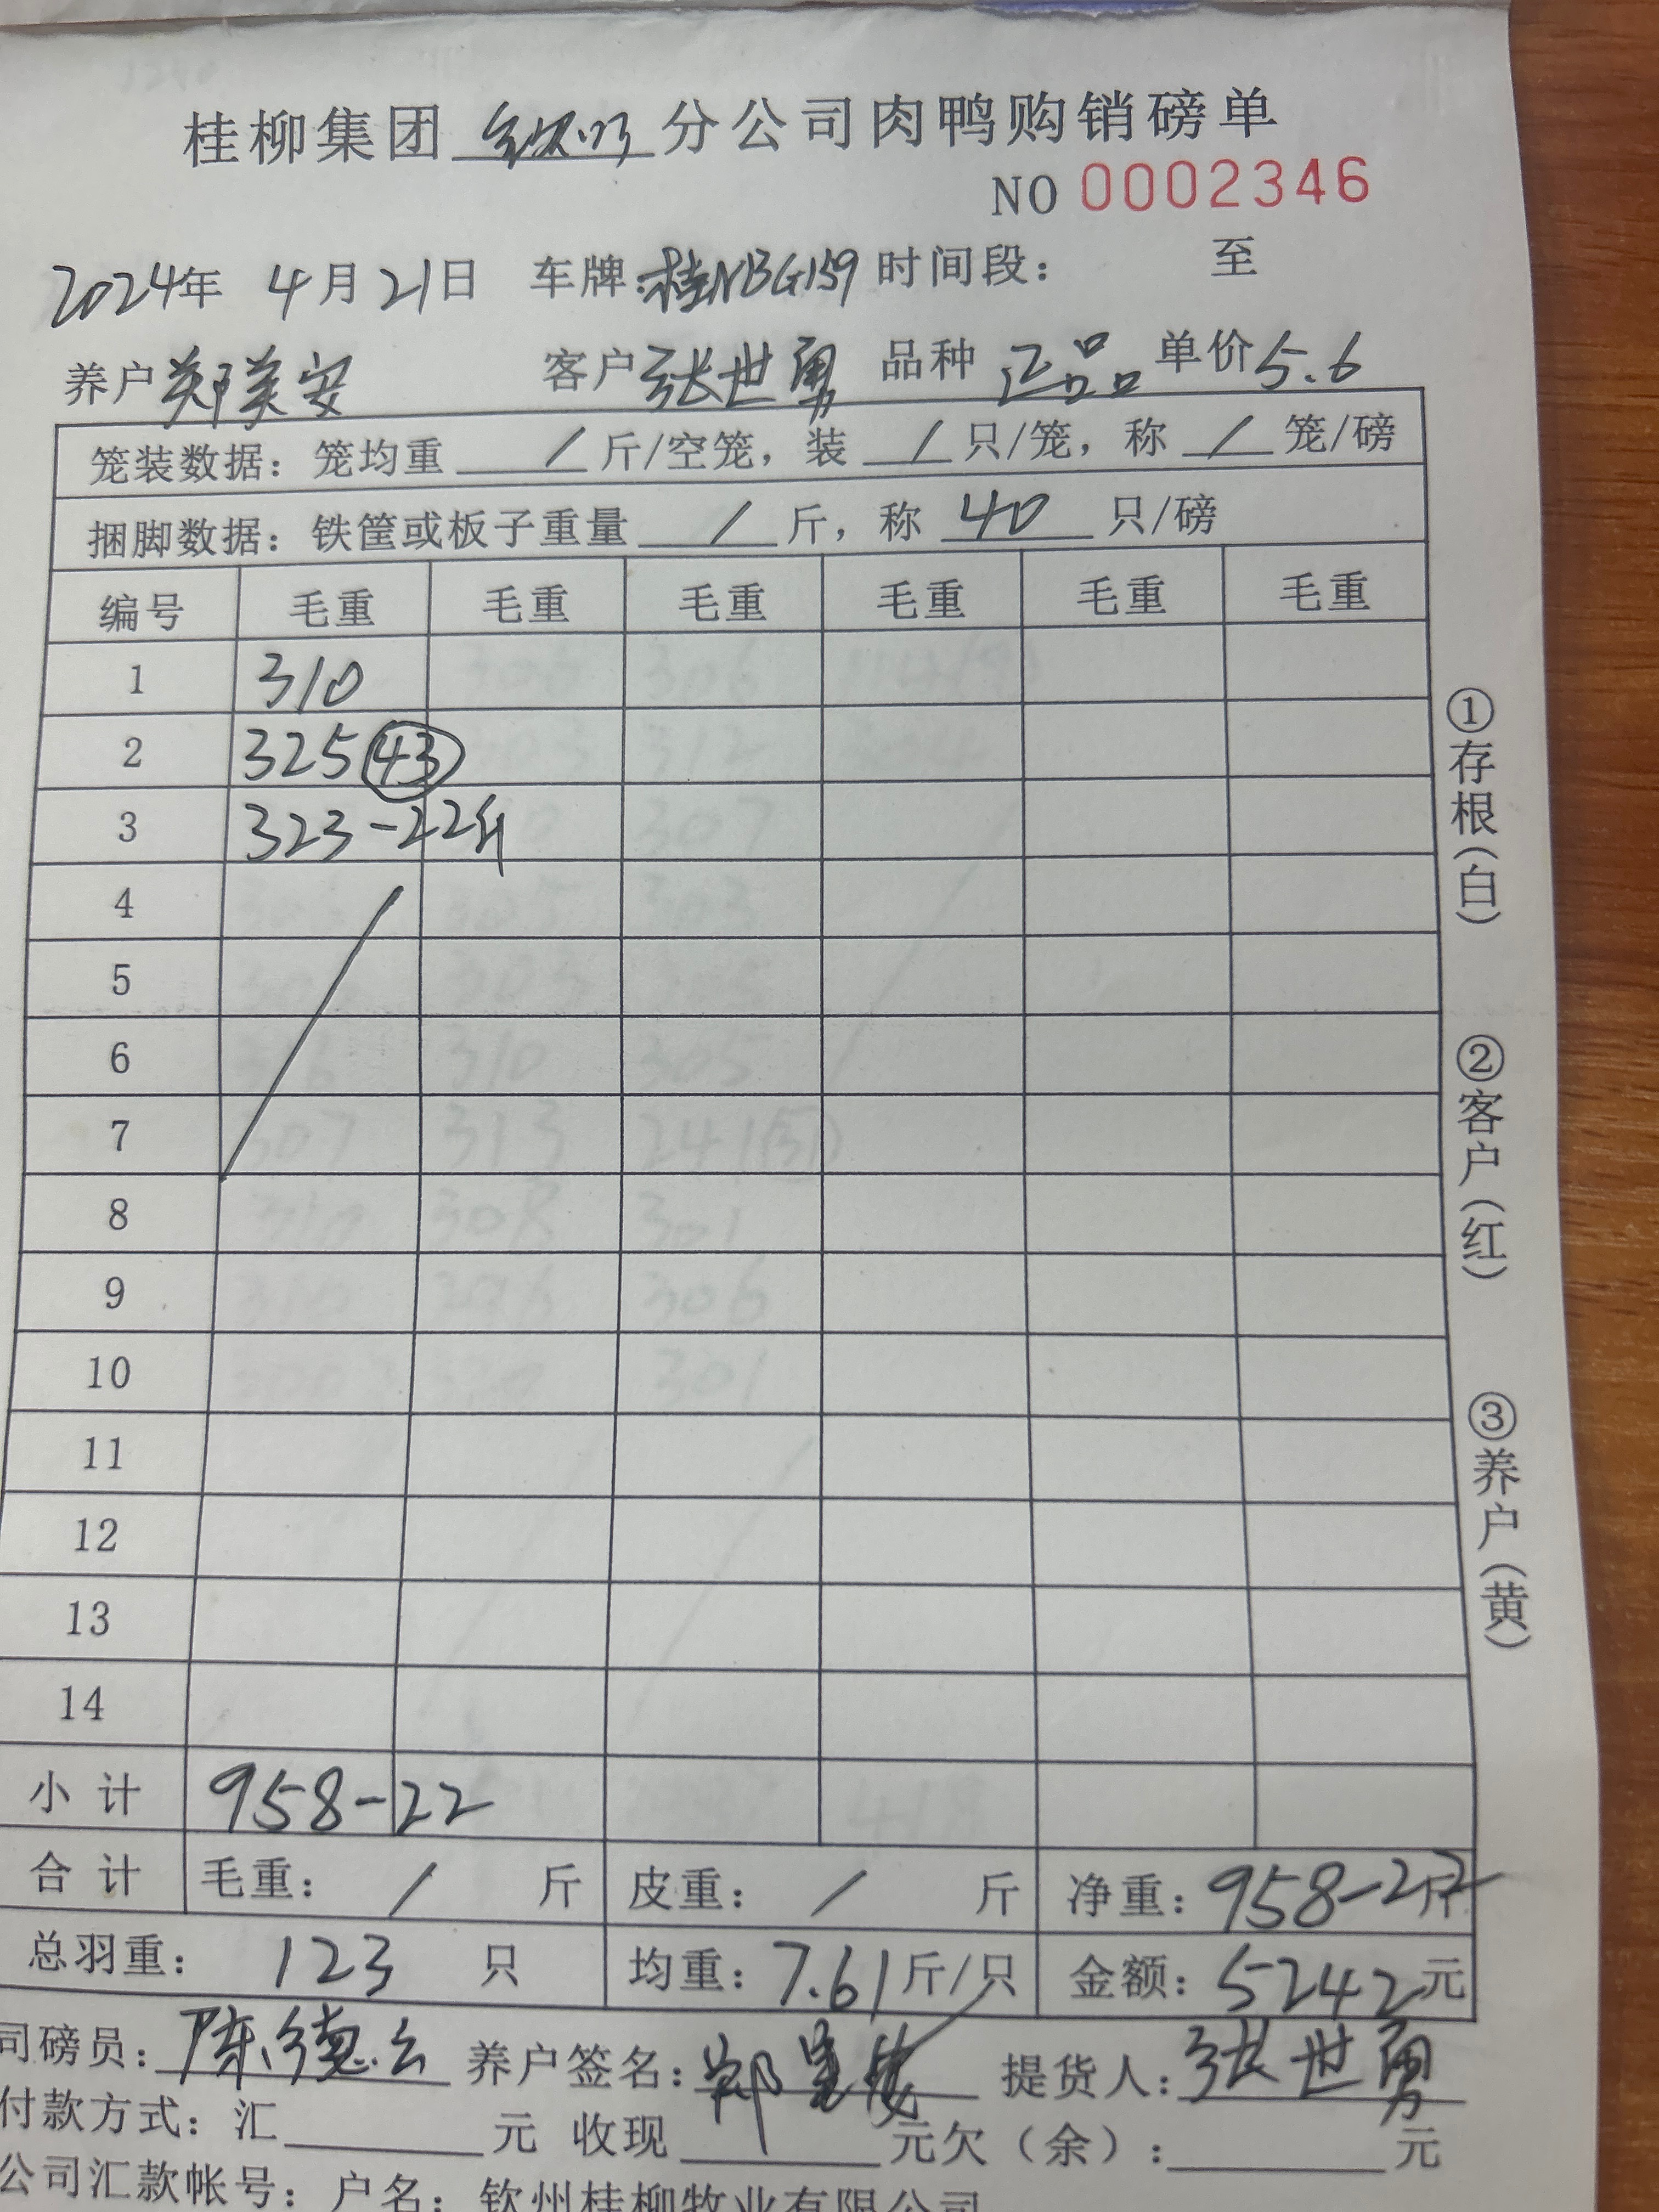 桂柳集团 钦州 分公司肉鸭购销磅单
NO 0002346
2024年 4月21日 车牌:桂NBG159 时间段: 至
养户 郑美安 客户 张世勇 品种 正品 单价 5.6
笼装数据: 笼均重 / 斤/空笼, 装 / 只/笼, 称 / 笼/磅
捆脚数据: 铁筐或板子重量 / 斤, 称 40 只/磅
编号 毛重 毛重 毛重 毛重 毛重 毛重
1 310
2 325 43
3 323-22斤
4
5
6
7
8
9
10
11
12
13
14
小计 958-22
合计 毛重: / 斤 皮重: / 斤 净重: 958-22斤
总羽重: 123 只 均重: 7.61斤/只 金额: 5242元
司磅员: 陈德云 养户签名: 郑美安 提货人: 张世勇
付款方式: 汇 元 收现 元欠(余): 元
公司汇款帐号: 户名: 钦州桂柳牧业有限公司
①存根(白)
②客户(红)
③养户(黄)